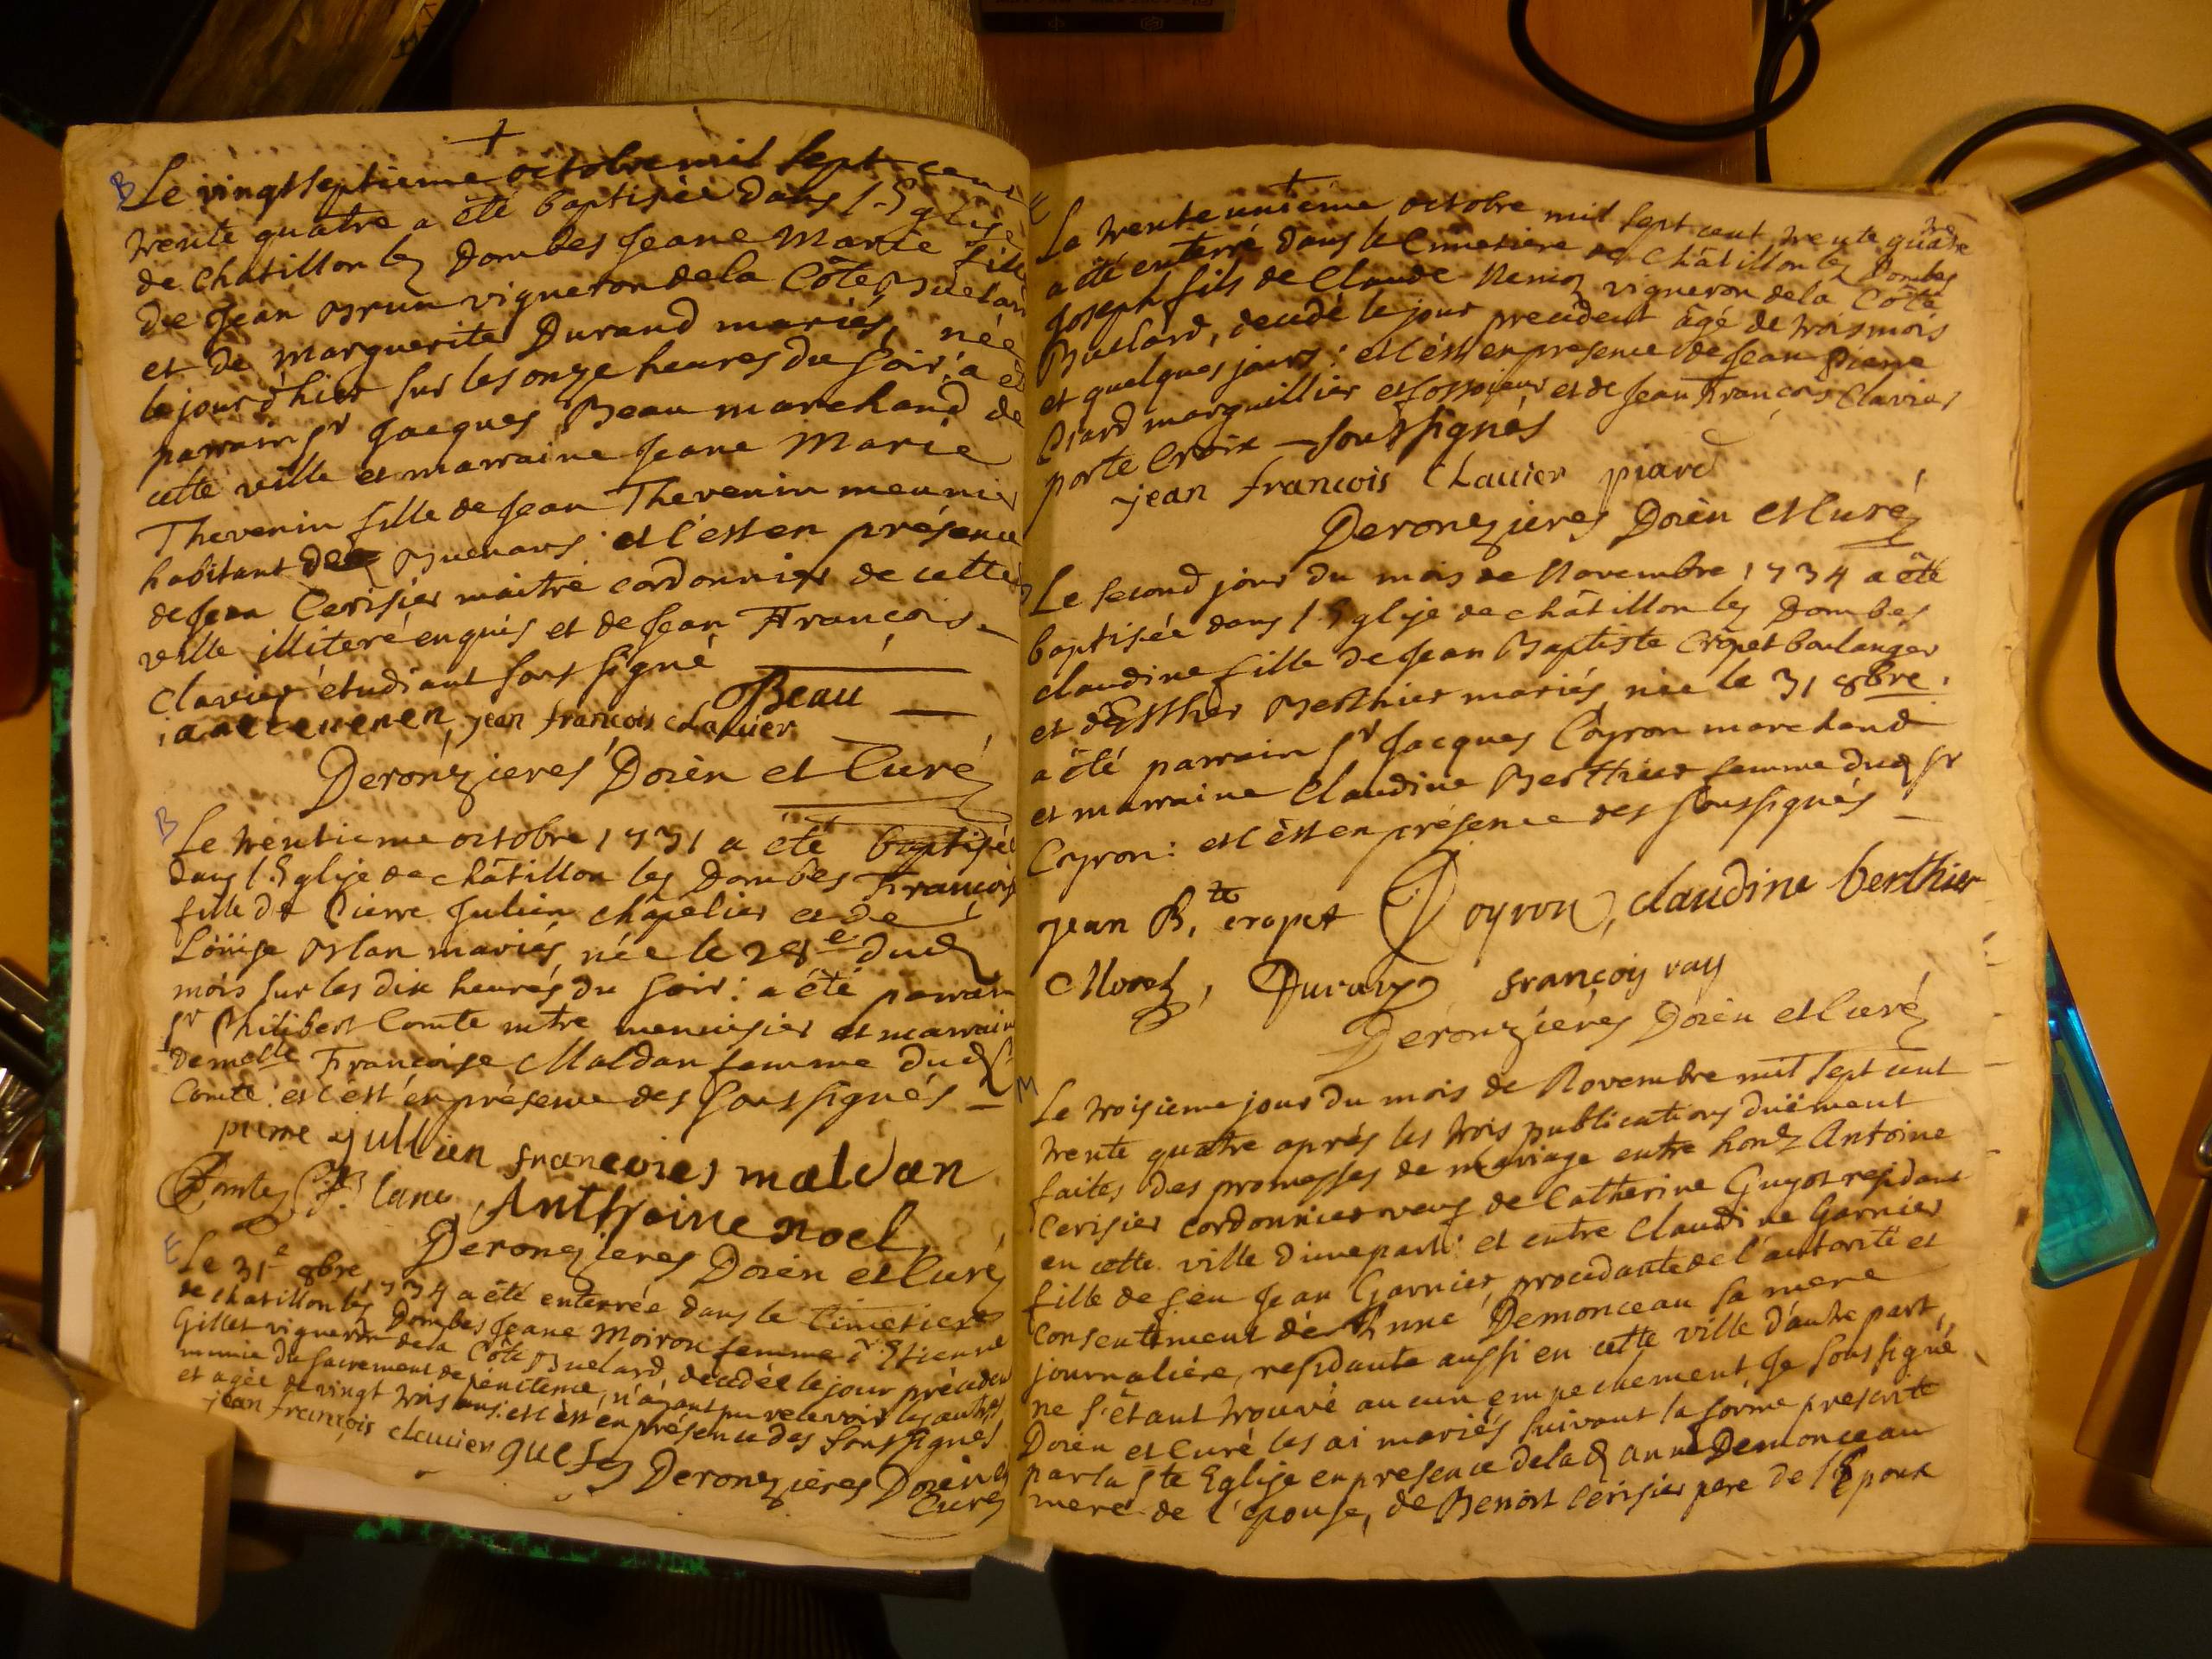 +
B
Le vingt septieme octobre mil sept cent
trente quatre a été baptisée dans l'Eglise
de chatillon les Dombes Jeane Marie fille
de Jean Brun vigneron de la Côte Buelard
et de Marguerite Durand mariés, née
le jour d'hier sur les onze heures du soir: a été
parrain sr Jacques Beau marchand de
cette ville et marraine Jeane Marie
Thevenin fille de Jean Thevenin meunier
habitant de et c'est en présence
de Jean Cerisier maitre cordonnier de cette
ville illiteré enquis et de Jean François
Clavier étudiant sous signé
Beau
jean francois chavier
Deronzieres Doïen et Curé
B
Le trentieme octobre 1731 a été baptisée
dans l'Eglise de châtillon les Dombes Françoise
fille de Pierre Julien chapelier et de
Loüise Blan mariés, née le 28e dud
mois sur les dix heures du soir: a été parrain
sr Philibert Comte mtre menuisier et marraine
Demelle Françoise Maldan femme dud sr
Comte: et c'est en présence des sous signés
pierre jullien francoies maldan
Comte, lane, Anthoine noel
Deronzieres Doïen et Curé
E
Le 31e 8bre 1734 a été enterrée dans le Cimetiere
de chatillon les Dombes Jeane Moiron femme d'Etienne
Gillet vigneron de la Côte Buelard, decedée le jour précédent
munie du sacrement de penitence, n'aïant pu recevoir les autres
et agée de vingt trois ans: et c'est en présence des sous signés
jean françois clavier
Deronzieres Doïen et
Curé
+
E
Le trente unième octobre mil sept cent trente quatre
a été enterré dans le Cimetiere de Châtillon les Dombes
Joseph fils de Claude vigneron de la Côte
Buelard, decedé le jour precedent âgé de trois mois
et quelques jours: et c'est en presence de Jean Pierre
Piard marguillier et fossoieur et de Jean François Clavier
porte Croix sous signés
jean francois chavier piard
Deronzieres Doïen et Curé
B
Le second jour du mois de Novembre 1734 a été
baptisée dans l'Eglise de châtillon les Dombes
claudine fille de Jean Baptiste Cropet boulanger
et d'Esther Berthier mariés née le 31 8bre:
a été parrain sr Jacques Coyron marchand
et marraine Claudine Berthier femme dud sr
Coyron: et c'est en présence des soussignés
jean B.te cropet Coyron, claudine berthier
Morel, françois ray
Deronzieres Doïen et Curé
M
Le troisieme jour du mois de Novembre mil sept cent
trente quatre après les trois publications düement
faites des promesses de mariage entre hon. Antoine
Cerisier cordonnier veuf de Catherine Guyot residant
en cette ville d'une part: et entre Claudine Garnier
fille de feu Jean Garnier, procedante de l'autorité et
consentement de Anne Demonceau sa mere
journaliére, residante aussi en cette ville d'autre part,
ne s'étant trouvé aucun empechement Je sous signé
Doïen et Curé les ai mariés suivant la forme prescrite
par la Ste Eglise en presence de lad anne Demonceau
mere de l'épouse, de Benoit Cerisier pere de l'Epoux